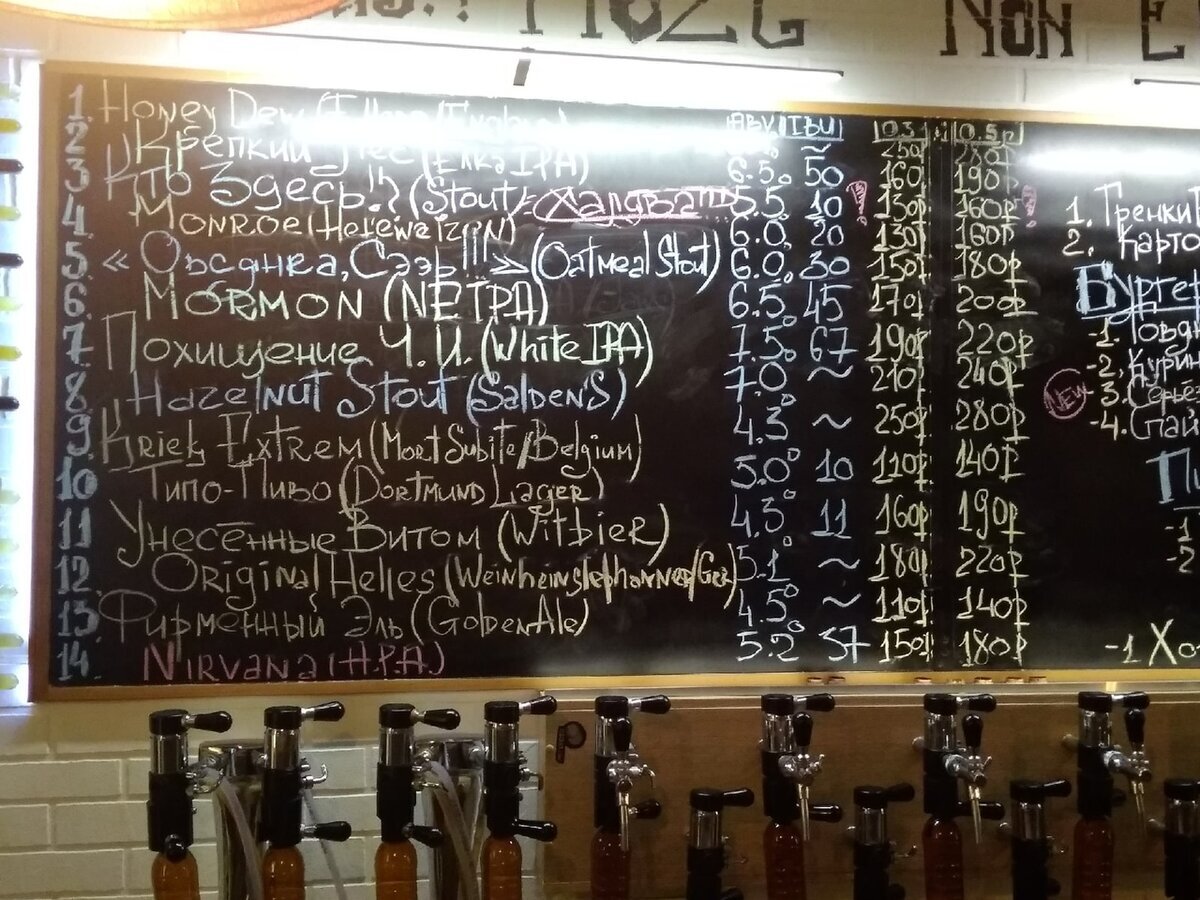 NON E
ABV IBU 0.3 0.5р
1. Honey Dew (Fullers/England) ~ 250р 280р
2 Крепкий Пёс (English IPA) 6.5° 50 160р 190р
3 Кто Здесь!? (Stout) Халдва 5.5° 10 130р 160р
4. Monroe (Hefeweizen) 6.0° 20 130р 160р
5 «Овсянка, Сээр!!!» (Oatmeal Stout) 6.0° 30 150р 180р
6. MORMON (NEIPA) 6.5° 45 170р 200р
7. Похищение Ч.И. (White IPA) 7.5° 67 190р 220р
8 Hazelnut Stout (Salden's) 7.0° ~ 210р 240р
9. Kriek Extrem (Mort Subite/Belgium) 4.3° ~ 250р 280р
10 Типо-Пиво (Dortmund Lager) 5.0° 10 110р 140р
11 Унесённые Витом (Witbier) 4.5° 11 160р 190р
12. Original Helles (Weinheinstephanner/Ger) 5.1° ~ 180р 220р
13. Фирменный Эль (Golden Ale) 4.5° ~ 110р 140р
14. Nirvana (APA) 5.2° 37 150р 180р
1. Гренки
2. Карто
Бургер
-1. Говдя
-2. Курин
NEW 3. Серьё
-4. Спай
Пи
-1
-2
-1 Хо